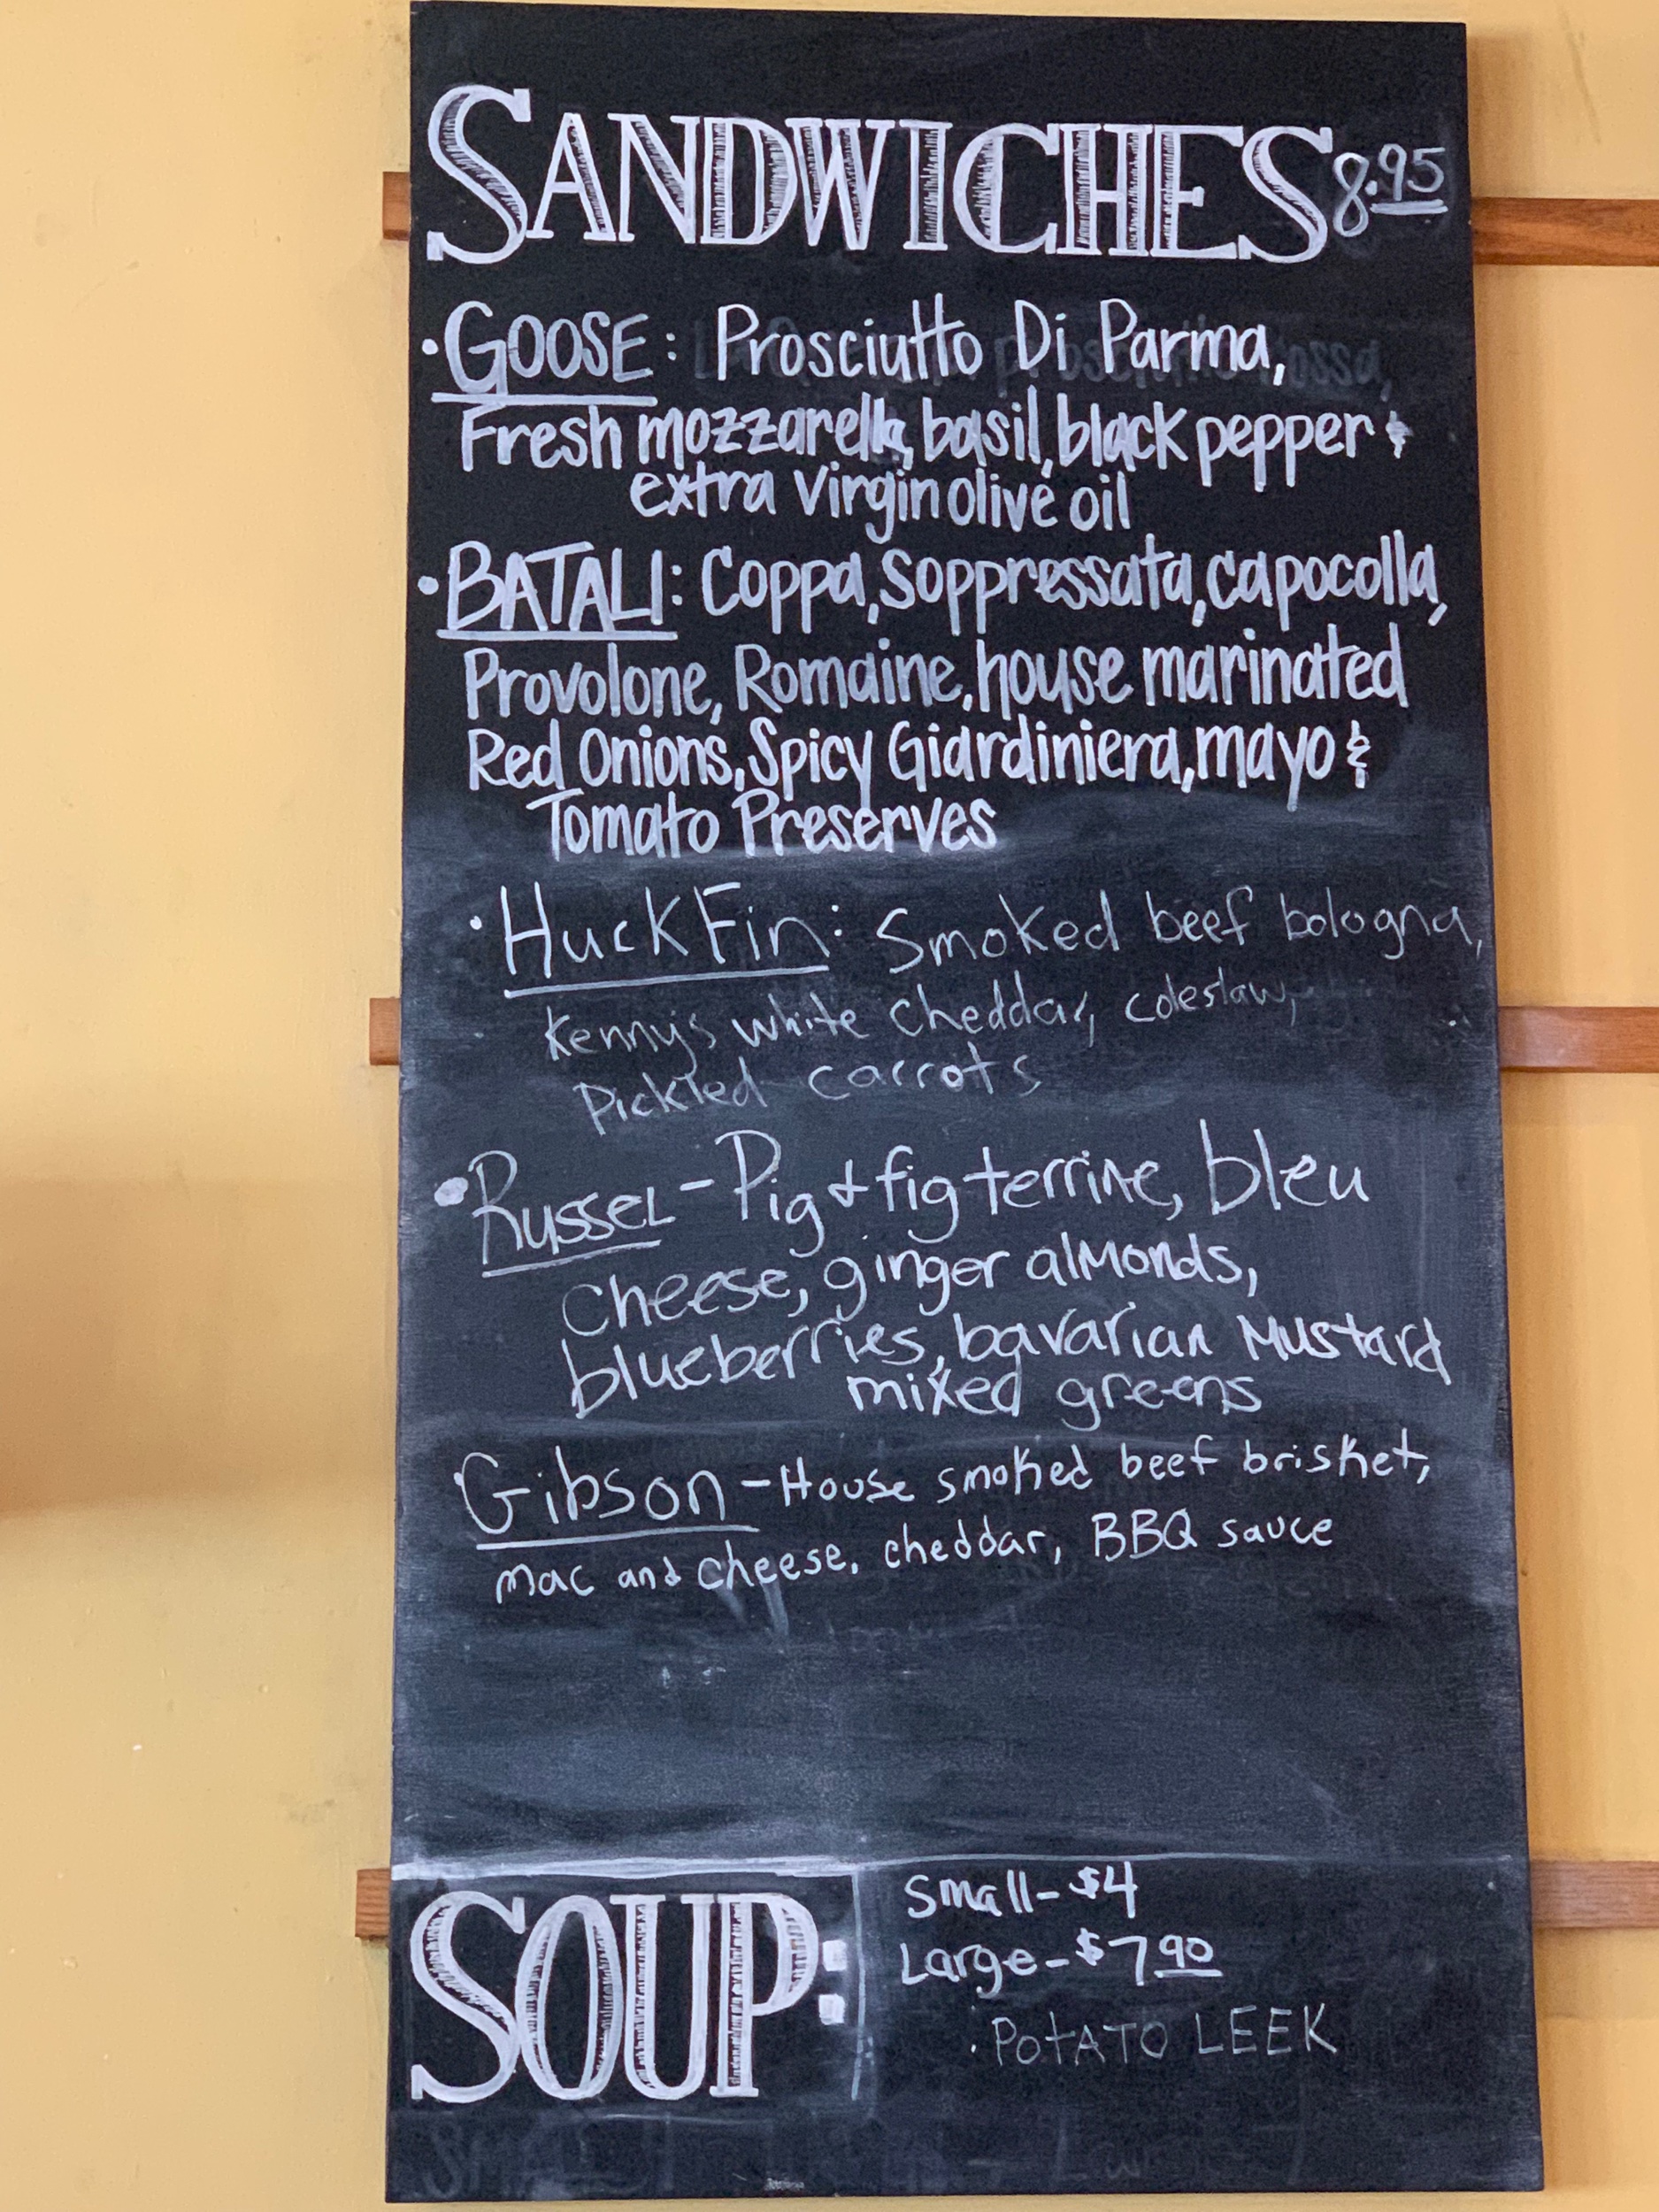 SANDWICHES 8.95
• GOOSE: Prosciutto Di Parma,
Fresh mozzarella, basil, black pepper &
extra virgin olive oil
• BATALI: Coppa, Soppressata, capocolla,
Provolone, Romaine, house marinated
Red Onions, Spicy Giardiniera, mayo &
Tomato Preserves
• Huck Fin: Smoked beef bologna,
Kenny's white cheddar, coleslaw,
Pickled carrots
• Russel - Pig & fig terrine, bleu
cheese, ginger almonds,
blueberries, bavarian mustard
mixed greens
• Gibson - House smoked beef brisket,
mac and cheese, cheddar, BBQ sauce
SOUP:
Small - $4
Large - $7.90
• POTATO LEEK